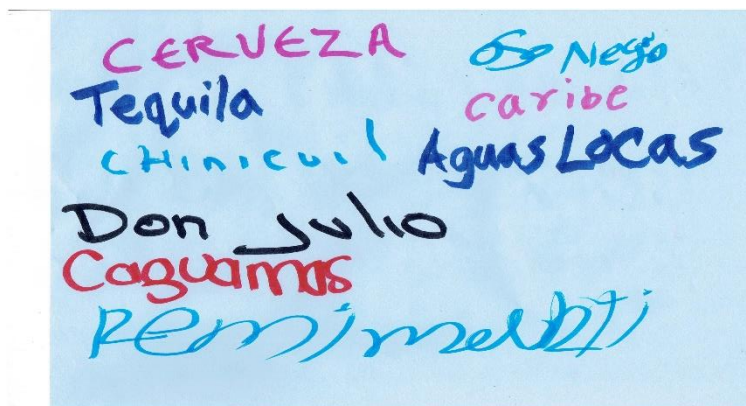 CERVEZA
Oso Nego
Tequila
caribe
CHinicuil
Aguas Locas
Don Julio
Caguamas